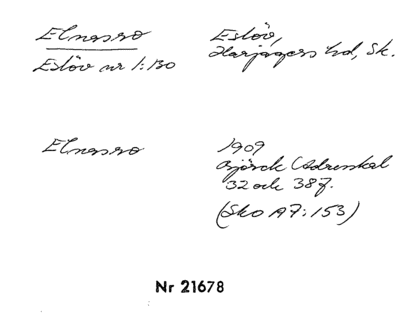 Elnesro
Eslöv nr 1:130
Eslöv,
Harjagers hd, Sk.
Elnesro
1909
Björck (Adresskal
32 och 387.
(Sko A7:153)
Nr 21678